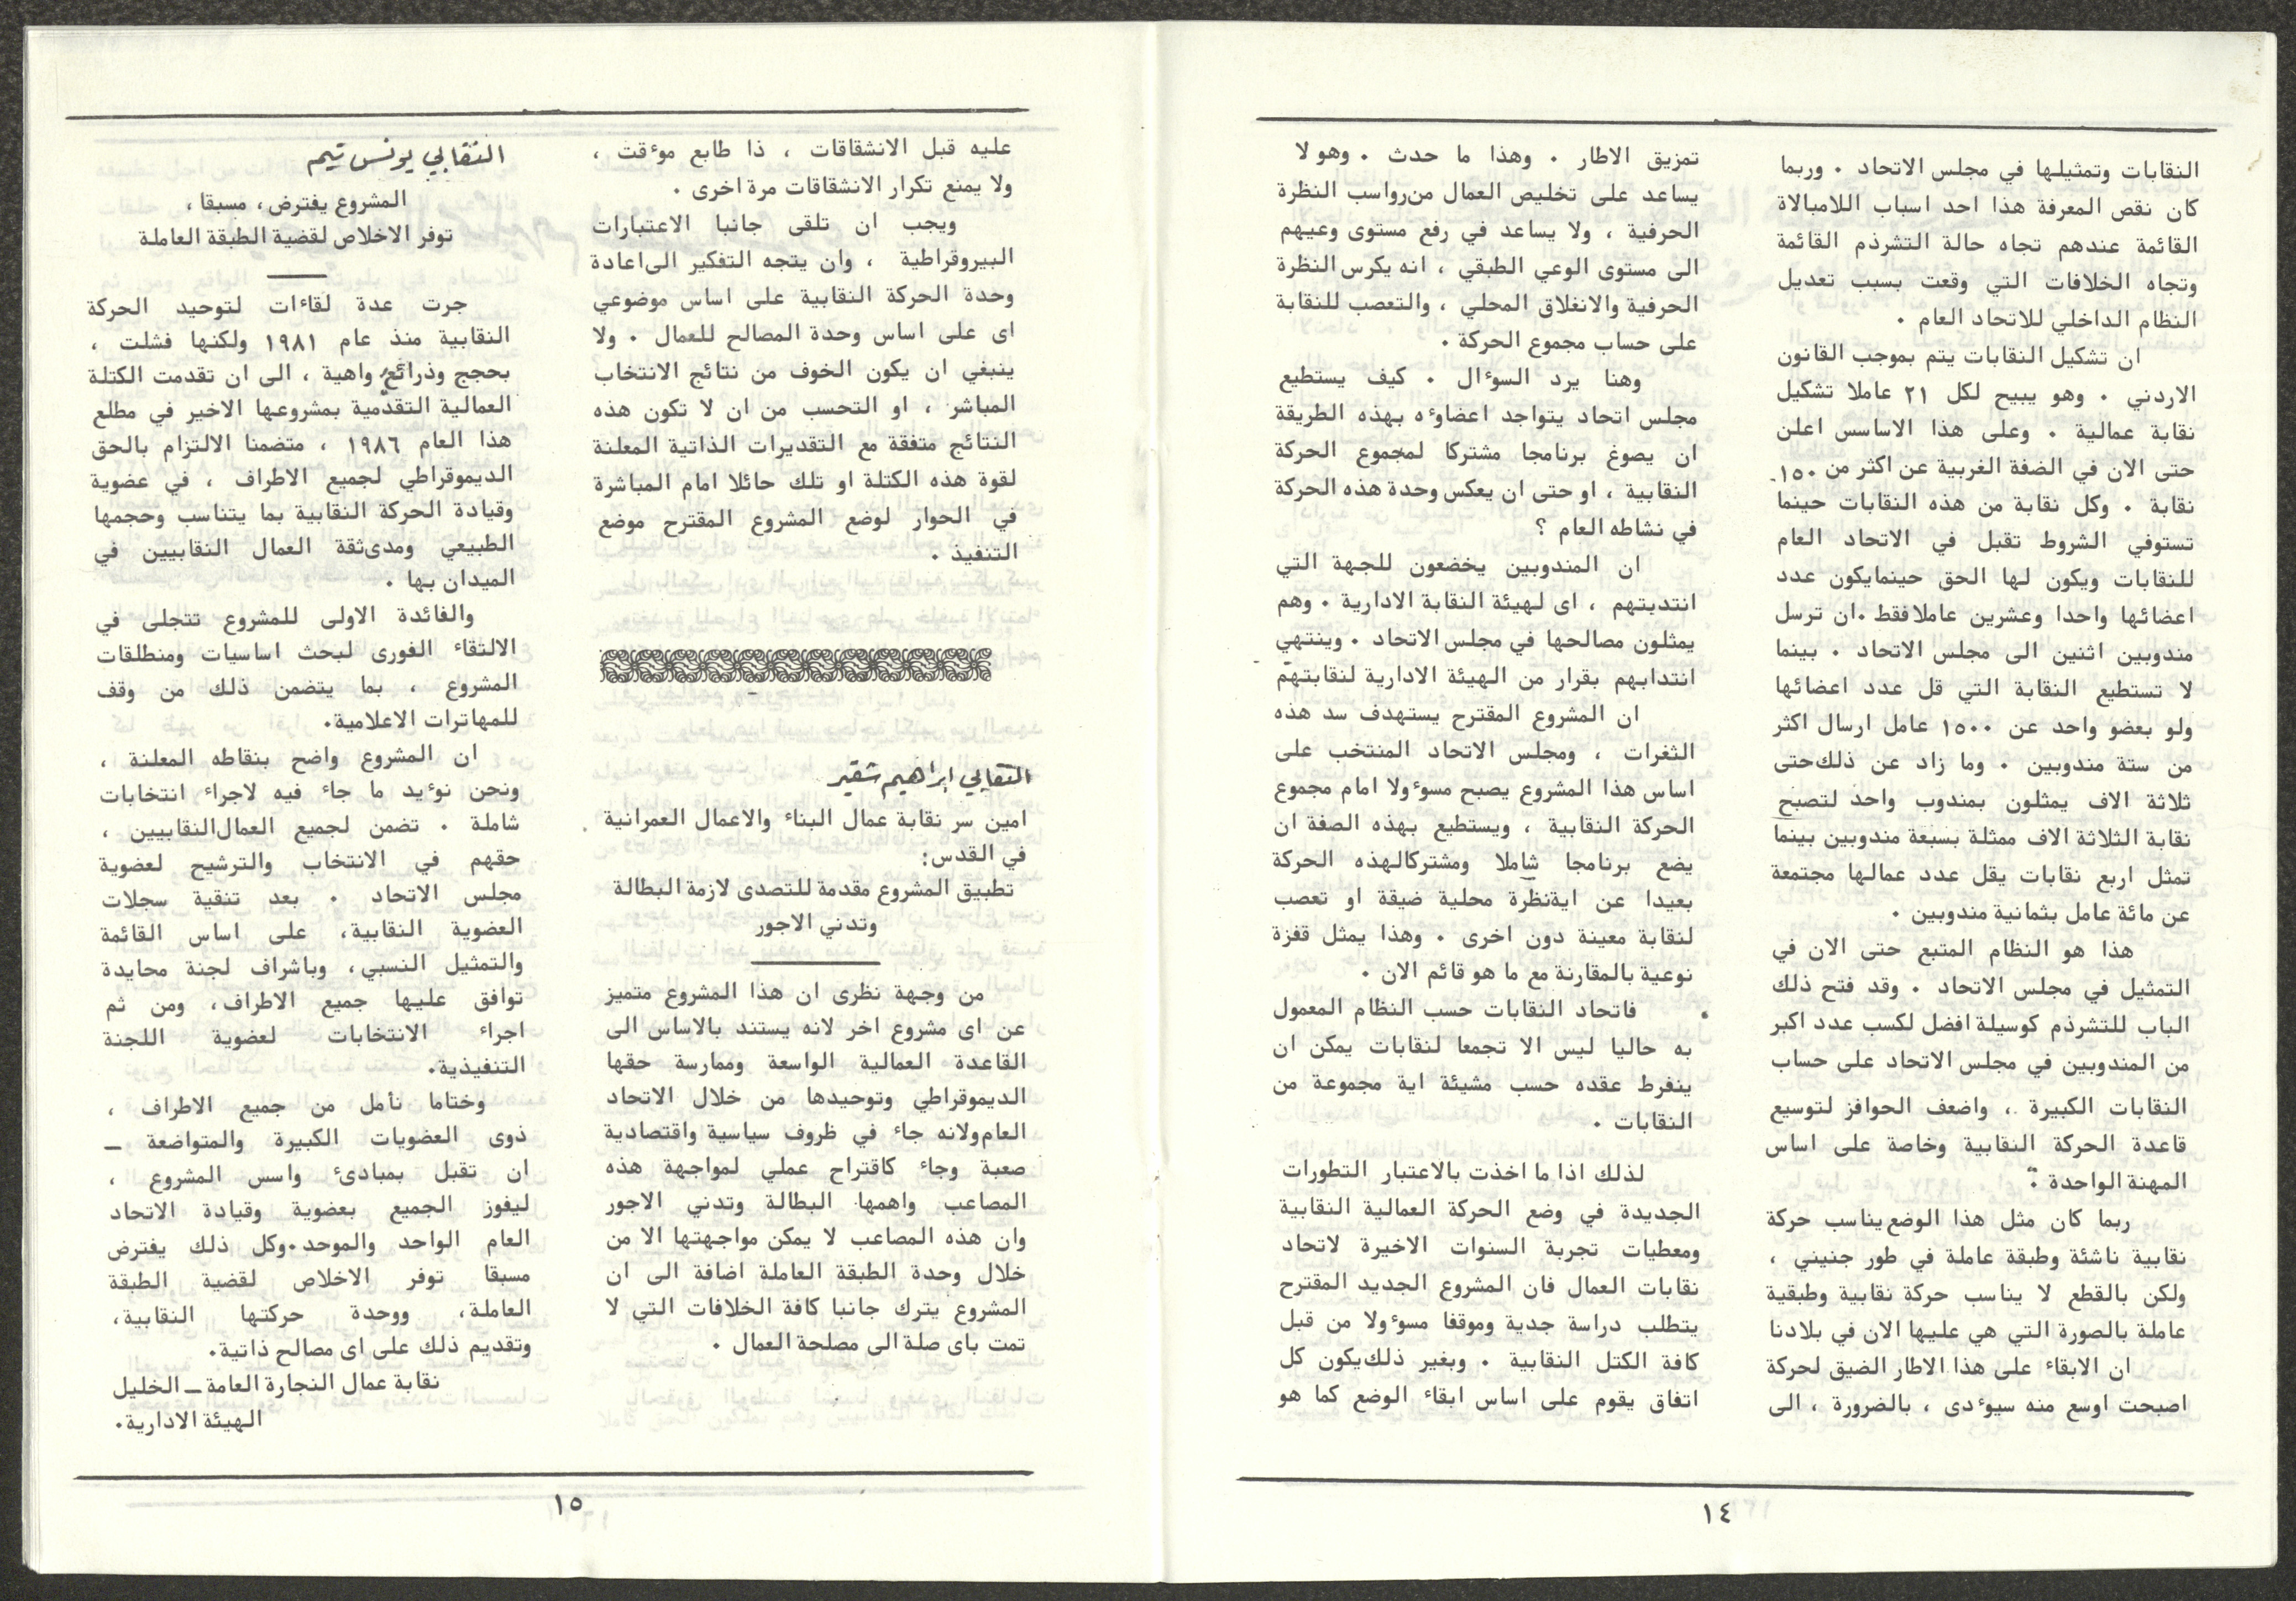 النقابات وتمثيلها في مجلس الاتحاد . وربما
كان نقص المعرفة هذا احد اسباب اللامبالاة
القائمة عندهم تجاه حالة التشرذم القائمة
وتجاه الخلافات التي وقعت بسبب تعديل
النظام الداخلي للاتحاد العام .
ان تشكيل النقابات يتم بموجب القانون
الاردني . وهو يبيح لكل ٢١ عاملا تشكيل
نقابة عمالية . وعلى هذا الاساسس اعلن
حتى الان في الضفة الغربية عن اكثر من ١٥٠
نقابة . وكل نقابة من هذه النقابات حينما
تستوفي الشروط تقبل في الاتحاد العام
للنقابات ويكون لها الحق حينمايكون عدد
اعضائها واحدا وعشرين عاملا فقط . ان ترسل
مندوبين اثنين الى مجلس الاتحاد . بينما
لا تستطيع النقابة التي قل عدد اعضائها
ولو بعضو واحد عن ١٥٠٠ عامل ارسال اكثر
من ستة مندوبين . وما زاد عن ذلك حتى
ثلاثة الاف يمثلون بمندوب واحد لتصبح
نقابة الثلاثة الاف ممثلة بسبعة مندوبين بينما
تمثل اربع نقابات يقل عدد عمالها مجتمعة
عن مائة عامل بثمانية مندوبين .
هذا هو النظام المتبع حتى الان في
التمثيل في مجلس الاتحاد . وقد فتح ذلك
الباب للتشرذم كوسيلة افضل لكسب عدد اكبر
من المندوبين في مجلس الاتحاد على حساب
النقابات الكبيرة ، واضعف الحوافز لتوسيع
قاعدة الحركة النقابية وخاصة على اساس
المهنة الواحدة .
ربما كان مثل هذا الوضع يناسب حركة
نقابية ناشئة وطبقة عاملة في طور جنيني ،
ولكن بالقطع لا يناسب حركة نقابية وطبقية
عاملة بالصورة التي هي عليها الان في بلادنا
ان الابقاء على هذا الاطار الضيق لحركة
اصبحت اوسع منه سيؤدى ، بالضرورة ، الى
تمزيق الاطار . وهذا ما حدث . وهو لا
يساعد على تخليص العمال من رواسب النظرة
الحرفية ، ولا يساعد في رفع مستوى وعيهم
الى مستوى الوعي الطبقي ، انه يكرس النظرة
الحرفية والانغلاق المحلي ، والتعصب للنقابة
على حساب مجموع الحركة .
وهنا يرد السؤال . كيف يستطيع
مجلس اتحاد يتواجد اعضاؤه بهذه الطريقة
ان يصوغ برنامجا مشتركا لمجموع الحركة
النقابية ، او حتى ان يعكس وحدة هذه الحركة
في نشاطه العام ؟
ان المندوبين يخضعون للجهة التي
انتدبتهم ، اى لهيئة النقابة الادارية . وهم
يمثلون مصالحها في مجلس الاتحاد . وينتهي
انتدابهم بقرار من الهيئة الادارية لنقابتهم
ان المشروع المقترح يستهدف سد هذه
الثغرات ، ومجلس الاتحاد المنتخب على
اساس هذا المشروع يصبح مسؤولا امام مجموع
الحركة النقابية ، ويستطيع بهذه الصفة ان
يضع برنامجا شاملا ومشتركالهذه الحركة
بعيدا عن اية نظرة محلية ضيقة او تعصب
لنقابة معينة دون اخرى . وهذا يمثل قفزة
نوعية بالمقارنة مع ما هو قائم الان .
فاتحاد النقابات حسب النظام المعمول
به حاليا ليس الا تجمعا لنقابات يمكن ان
ينفرط عقده حسب مشيئة اية مجموعة من
النقابات .
لذلك اذا ما اخذت بالاعتبار التطورات
الجديدة في وضع الحركة العمالية النقابية
ومعطيات تجربة السنوات الاخيرة لاتحاد
نقابات العمال فان المشروع الجديد المقترح
يتطلب دراسة جدية وموقفا مسؤولا من قبل
كافة الكتل النقابية . وبغير ذلك يكون كل
اتفاق يقوم على اساس ابقاء الوضع كما هو
١٤
عليه قبل الانشقاقات ، ذا طابع مؤقت ،
ولا يمنع تكرار الانشقاقات مرة اخرى .
ويجب ان تلقى جانبا الاعتبارات
البيروقراطية ، وان يتجه التفكير الى اعادة
وحدة الحركة النقابية على اساس موضوعي
اى على اساس وحدة المصالح للعمال . ولا
ينبغي ان يكون الخوف من نتائج الانتخاب
المباشر ، او التحسب من ان لا تكون هذه
النتائج متفقة مع التقديرات الذاتية المعلنة
لقوة هذه الكتلة او تلك حائلا امام المباشرة
في الحوار لوضع المشروع المقترح موضع
التنفيذ .
النقابي إبراهيم شقير
امين سر نقابة عمال البناء والاعمال العمرانية
في القدس:
تطبيق المشروع مقدمة للتصدى لازمة البطالة
وتدني الاجور
من وجهة نظرى ان هذا المشروع متميز
عن اى مشروع اخر لانه يستند بالاساس الى
القاعدة العمالية الواسعة وممارسة حقها
الديموقراطي وتوحيدها من خلال الاتحاد
العام ولانه جاء في ظروف سياسية واقتصادية
صعبة وجاء كاقتراح عملي لمواجهة هذه
المصاعب واهمها البطالة وتدني الاجور
وان هذه المصاعب لا يمكن مواجهتها الا من
خلال وحدة الطبقة العاملة اضافة الى ان
المشروع يترك جانبا كافة الخلافات التي لا
تمت باى صلة الى مصلحة العمال .
النقابي يونس تيم
المشروع يفترض، مسبقا،
توفر الاخلاص لقضية الطبقة العاملة
جرت عدة لقاءات لتوحيد الحركة
النقابية منذ عام ١٩٨١ ولكنها فشلت ،
بحجج وذرائع واهية ، الى ان تقدمت الكتلة
العمالية التقدمية بمشروعها الاخير في مطلع
هذا العام ١٩٨٦ ، متضمنا الالتزام بالحق
الديموقراطي لجميع الاطراف ، في عضوية
وقيادة الحركة النقابية بما يتناسب وحجمها
الطبيعي ومدى ثقة العمال النقابيين في
الميدان بها .
والفائدة الاولى للمشروع تتجلى في
الالتقاء الفورى لبحث اساسيات ومنطلقات
المشروع ، بما يتضمن ذلك من وقف
للمهاترات الاعلامية.
ان المشروع واضح بنقاطه المعلنة ،
ونحن نؤيد ما جاء فيه لاجراء انتخابات
شاملة . تضمن لجميع العمال النقابيين ،
حقهم في الانتخاب والترشيح لعضوية
مجلس الاتحاد . بعد تنقية سجلات
العضوية النقابية، على اساس القائمة
والتمثيل النسبي، وباشراف لجنة محايدة
توافق عليها جميع الاطراف، ومن ثم
اجراء الانتخابات لعضوية اللجنة
التنفيذية.
وختاما نأمل من جميع الاطراف ،
ذوى العضويات الكبيرة والمتواضعة ـ
ان تقبل بمبادئ واسس المشروع ،
ليفوز الجميع بعضوية وقيادة الاتحاد
العام الواحد والموحد.وكل ذلك يفترض
مسبقا توفر الاخلاص لقضية الطبقة
العاملة، ووحدة حركتها النقابية،
وتقديم ذلك على اى مصالح ذاتية.
نقابة عمال النجارة العامة ـ الخليل
الهيئة الادارية.
١٥